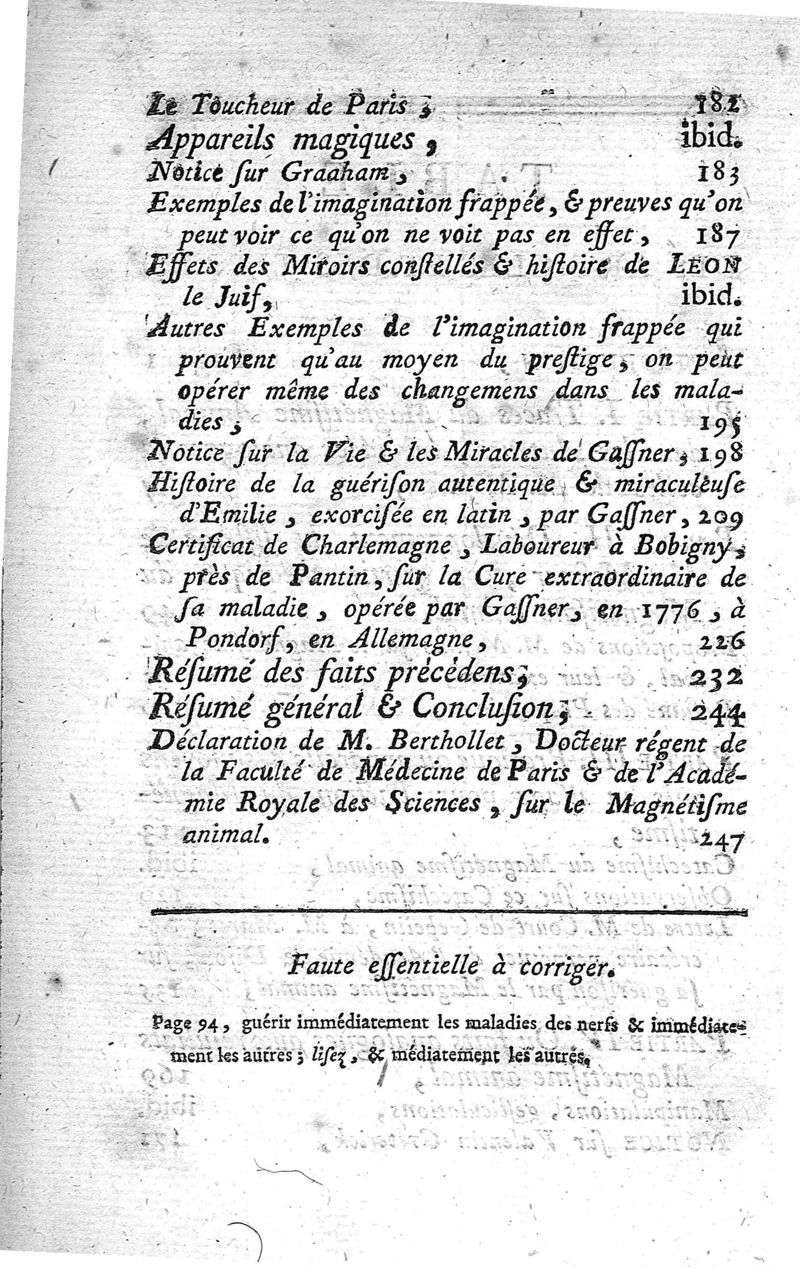 Le Toucheur de Paris, 182
Appareils magiques, ibid.
Notice ſur Graaham, 183
Exemples de l'imagination frappée, & preuves qu'on
peut voir ce qu'on ne voit pas en effet, 187
Effets des Miroirs conſtellés & hiſtoire de LÉON
le Juif, ibid.
Autres Exemples de l'imagination frappée qui
prouvent qu'au moyen du preſtige, on peut
opérer même des changemens dans les mala-
dies, 195
Notice ſur la Vie & les Miracles de Gaſſner, 198
Hiſtoire de la guériſon autentique & miraculeuſe
d'Emilie, exorciſée en latin, par Gaſſner, 209
Certificat de Charlemagne, Laboureur à Bobigny,
près de Pantin, ſur la Cure extraordinaire de
ſa maladie, opérée par Gaſſner, en 1776, à
Pondorf, en Allemagne, 226
Réſumé des faits précédens, 232
Réſumé général & Concluſion, 244
Déclaration de M. Berthollet, Docteur régent de
la Faculté de Médecine de Paris & de l'Acadé-
mie Royale des Sciences, ſur le Magnétiſme
animal. 247
Faute eſſentielle à corriger.
Page 94, guérir immédiatement les maladies des nerfs & immédiate-
ment les autres; liſez, & médiatement les autres.